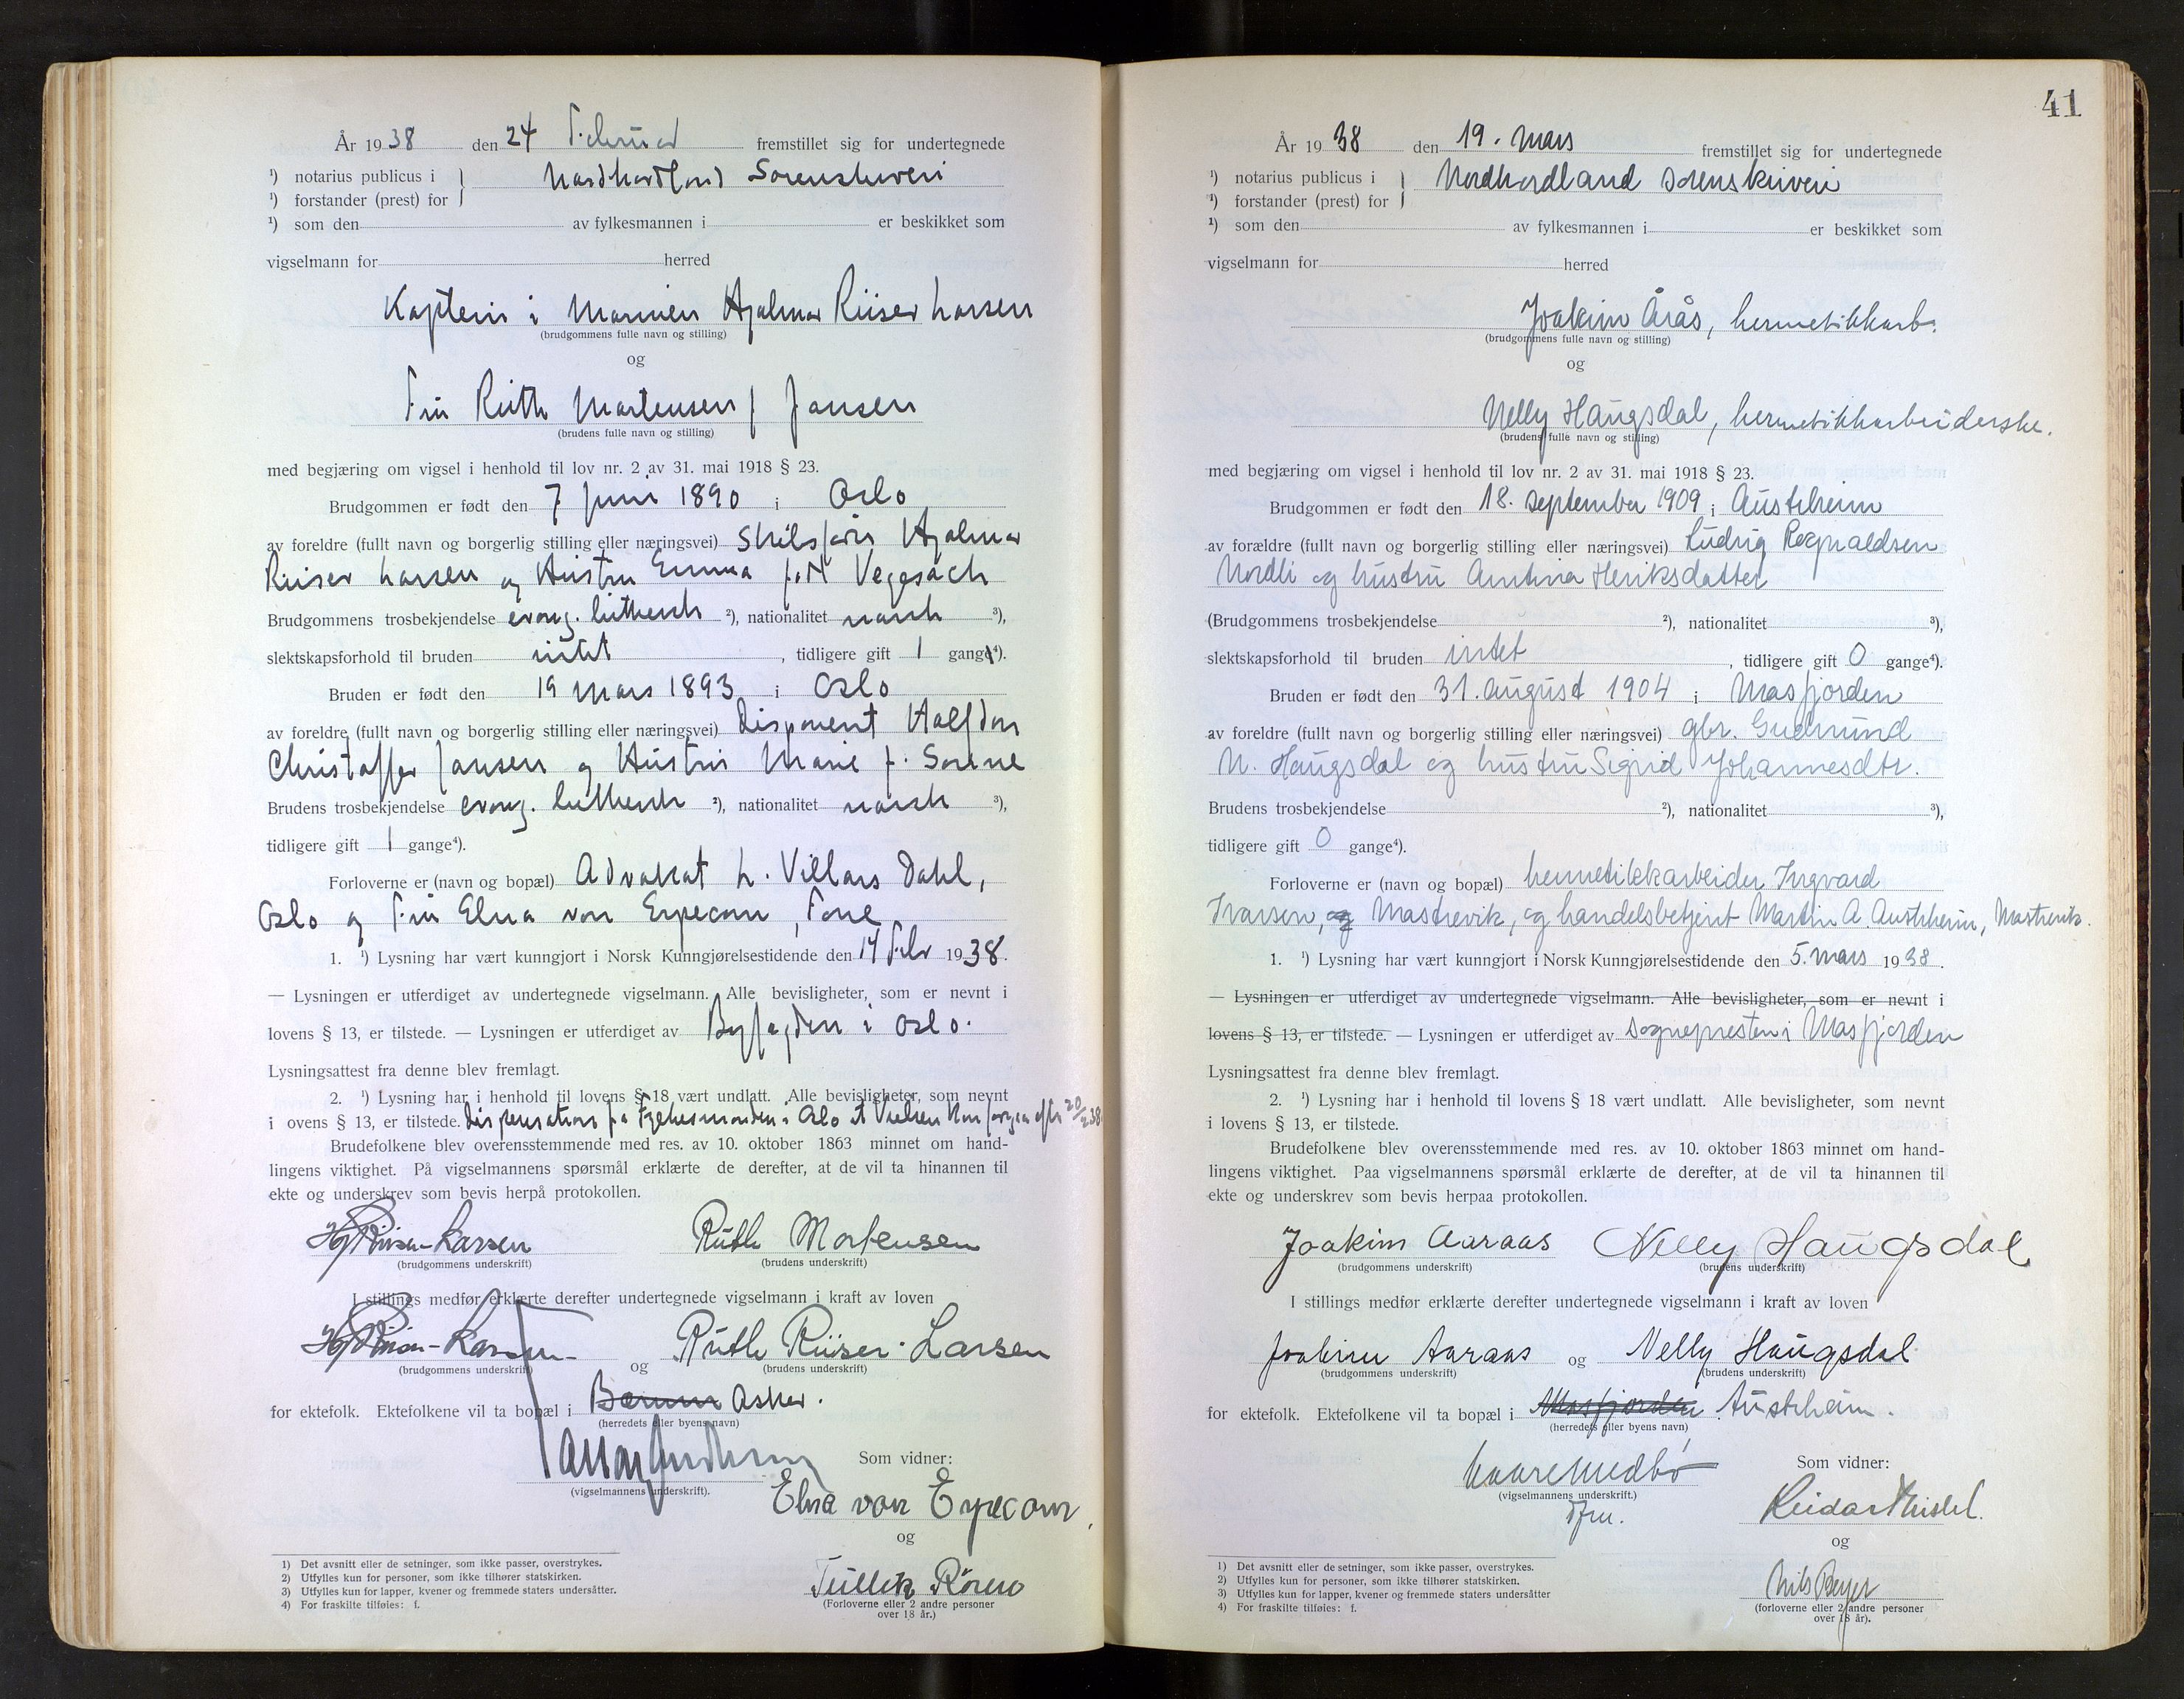 År 1938 den 24 Februar fremstillet sig for undertegnede
¹) notarius publicus i
Nordhordland Sorenskriveri
¹) forstander (prest) for
¹) som den av fylkesmannen i er beskikket som
vigselmann for herred
Kaptein i Marinen Hjalmar Riiser Larsen
(brudgommens fulle navn og stilling)
og
Fru Ruth Mortensen f Jansen
(brudens fulle navn og stilling)
med begjæring om vigsel i henhold til lov nr. 2 av 31. mai 1918 § 23.
Brudgommen er født den 7 juni 1890 i Oslo
av foreldre (fullt navn og borgerlig stilling eller næringsvei) Skibsfører Hjalmar
Riiser Larsen og Hustru Emma født Vegesach
Brudgommens trosbekjendelse evang. luthersk ²), nationalitet norsk ³),
slektskapsforhold til bruden intet, tidligere gift 1 gang⁴).
Bruden er født den 19 mars 1893 i Oslo
av foreldre (fullt navn og borgerlig stilling eller næringsvei) Disponent Halfdan
Christoffer Jansen og Hustru Marie f.
Brudens trosbekjendelse evang. luthersk ²), nationalitet norsk ³),
tidligere gift 1 gange⁴).
Forloverne er (navn og bopæl) Advokat L. Villars Dahl,
Oslo og Fru Elna von Erpecom, Tone
1. ¹) Lysning har vært kunngjort i Norsk Kunngjørelsestidende den 14 Febr 1938.
— Lysningen er utferdiget av undertegnede vigselmann. Alle bevisligheter, som er nevnt i
lovens § 13, er tilstede. — Lysningen er utferdiget av Byfogden i Oslo.
Lysningsattest fra denne blev fremlagt.
2. ¹) Lysning har i henhold til lovens § 18 vært undlatt. Alle bevisligheter, som nevnt
i ovens § 13, er tilstede. Dispensation fra Fylkesmanden i Oslo at Vielsen kan foregaa efter 20/2 38.
Brudefolkene blev overensstemmende med res. av 10. oktober 1863 minnet om hand-
lingens viktighet. På vigselmannens spørsmål erklærte de derefter, at de vil ta hinannen til
ekte og underskrev som bevis herpå protokollen.
Hj Riiser-Larsen Ruth Mortensen
(brudgommens underskrift) (brudens underskrift)
I stillings medfør erklærte derefter undertegnede vigselmann i kraft av loven
Hj Riiser-Larsen og Ruth Riiser-Larsen
(brudgommens underskrift) (brudens underskrift)
for ektefolk. Ektefolkene vil ta bopæl i Bærum Asker.
(herredets eller byens navn)
Som vidner:
(vigselmannens underskrift).
Elna von Erpecom.
og
Tullik Rören
(Forloverne eller 2 andre personer
over 18 år.)
1) Det avsnitt eller de setninger, som ikke passer, overstrykes.
2) Utfylles kun for personer, som ikke tilhører statskirken.
3) Utfylles kun for lapper, kvener og fremmede staters undersåtter.
4) For fraskilte tilføies: f.
41
År 1938 den 19. Mars fremstillet sig for undertegnede
¹) notarius publicus i
Nordhordland sorenskriveri
¹) forstander (prest) for
¹) som den av fylkesmannen i er beskikket som
vigselmann for herred
Joakim Årås, hermetikkarb.
(brudgommens fulle navn og stilling)
og
Nelly Haugsdal, hermetikkarbeiderske.
(brudens fulle navn og stilling)
med begjæring om vigsel i henhold til lov nr. 2 av 31. mai 1918 § 23.
Brudgommen er født den 18. september 1909 i Austrheim
av forældre (fullt navn og borgerlig stilling eller næringsvei) Ludvig Regnaldsen
Nordli og hustru Antina Heriksdatter
(Brudgommens trosbekjendelse ²), nationalitet ³),
slektskapsforhold til bruden intet, tidligere gift 0 gange⁴).
Bruden er født den 31. august 1904 i Masfjorden
av foreldre (fullt navn og borgerlig stilling eller næringsvei) gbr. Gudmund
N. Haugsdal og hustru Sigrid Johannesdtr.
Brudens trosbekjendelse ²), nationalitet ³),
tidligere gift 0 gange⁴).
Forloverne er (navn og bopæl) hermetikkarbeider Ingvard
Ivarsen, og Mastrevik, og handelsbetjent Martin A. Austrheim, Mastrevik.
1. ¹) Lysning har vært kunngjort i Norsk Kunngjørelsestidende den 5. mars 1938.
— Lysningen er utferdiget av undertegnede vigselmann. Alle bevisligheter, som er nevnt i
lovens § 13, er tilstede. — Lysningen er utferdiget av Sognepresten i Masfjorden
Lysningsattest fra denne blev fremlagt.
2. ¹) Lysning har i henhold til lovens § 18 vært undlatt. Alle bevisligheter, som nevnt
i lovens § 13, er tilstede.
Brudefolkene blev overensstemmende med res. av 10. oktober 1863 minnet om hand-
lingens viktighet. Paa vigselmannens spørsmål erklærte de derefter, at de vil ta hinannen til
ekte og underskrev som bevis herpaa protokollen.
Joakim Aaraas Nelly Haugsdal
(brudgommens underskrift) (brudens underskrift)
I stillings medfør erklærte derefter undertegnede vigselmann i kraft av loven
Joakim Aaraas og Nelly Haugsdal
(brudgommens underskrift) (brudens underskrift)
for ektefolk. Ektefolkene vil ta bopæl i Masfjorden Austrheim.
(herredets eller byens navn)
Kaare Medbö
Som vidner:
(vigselmannens underskrift.)
dfm.
Reidar
og
Nils Beyer
(forloverne eller 2 andre personer
over 18 år).
1) Det avsnitt eller de setninger, som ikke passer, overstrykes.
2) Utfylles kun for personer, som ikke tilhører statskirken.
3) Utfylles kun for lapper, kvener og fremmede staters undersåtter
4) For fraskilte tilføies: f.